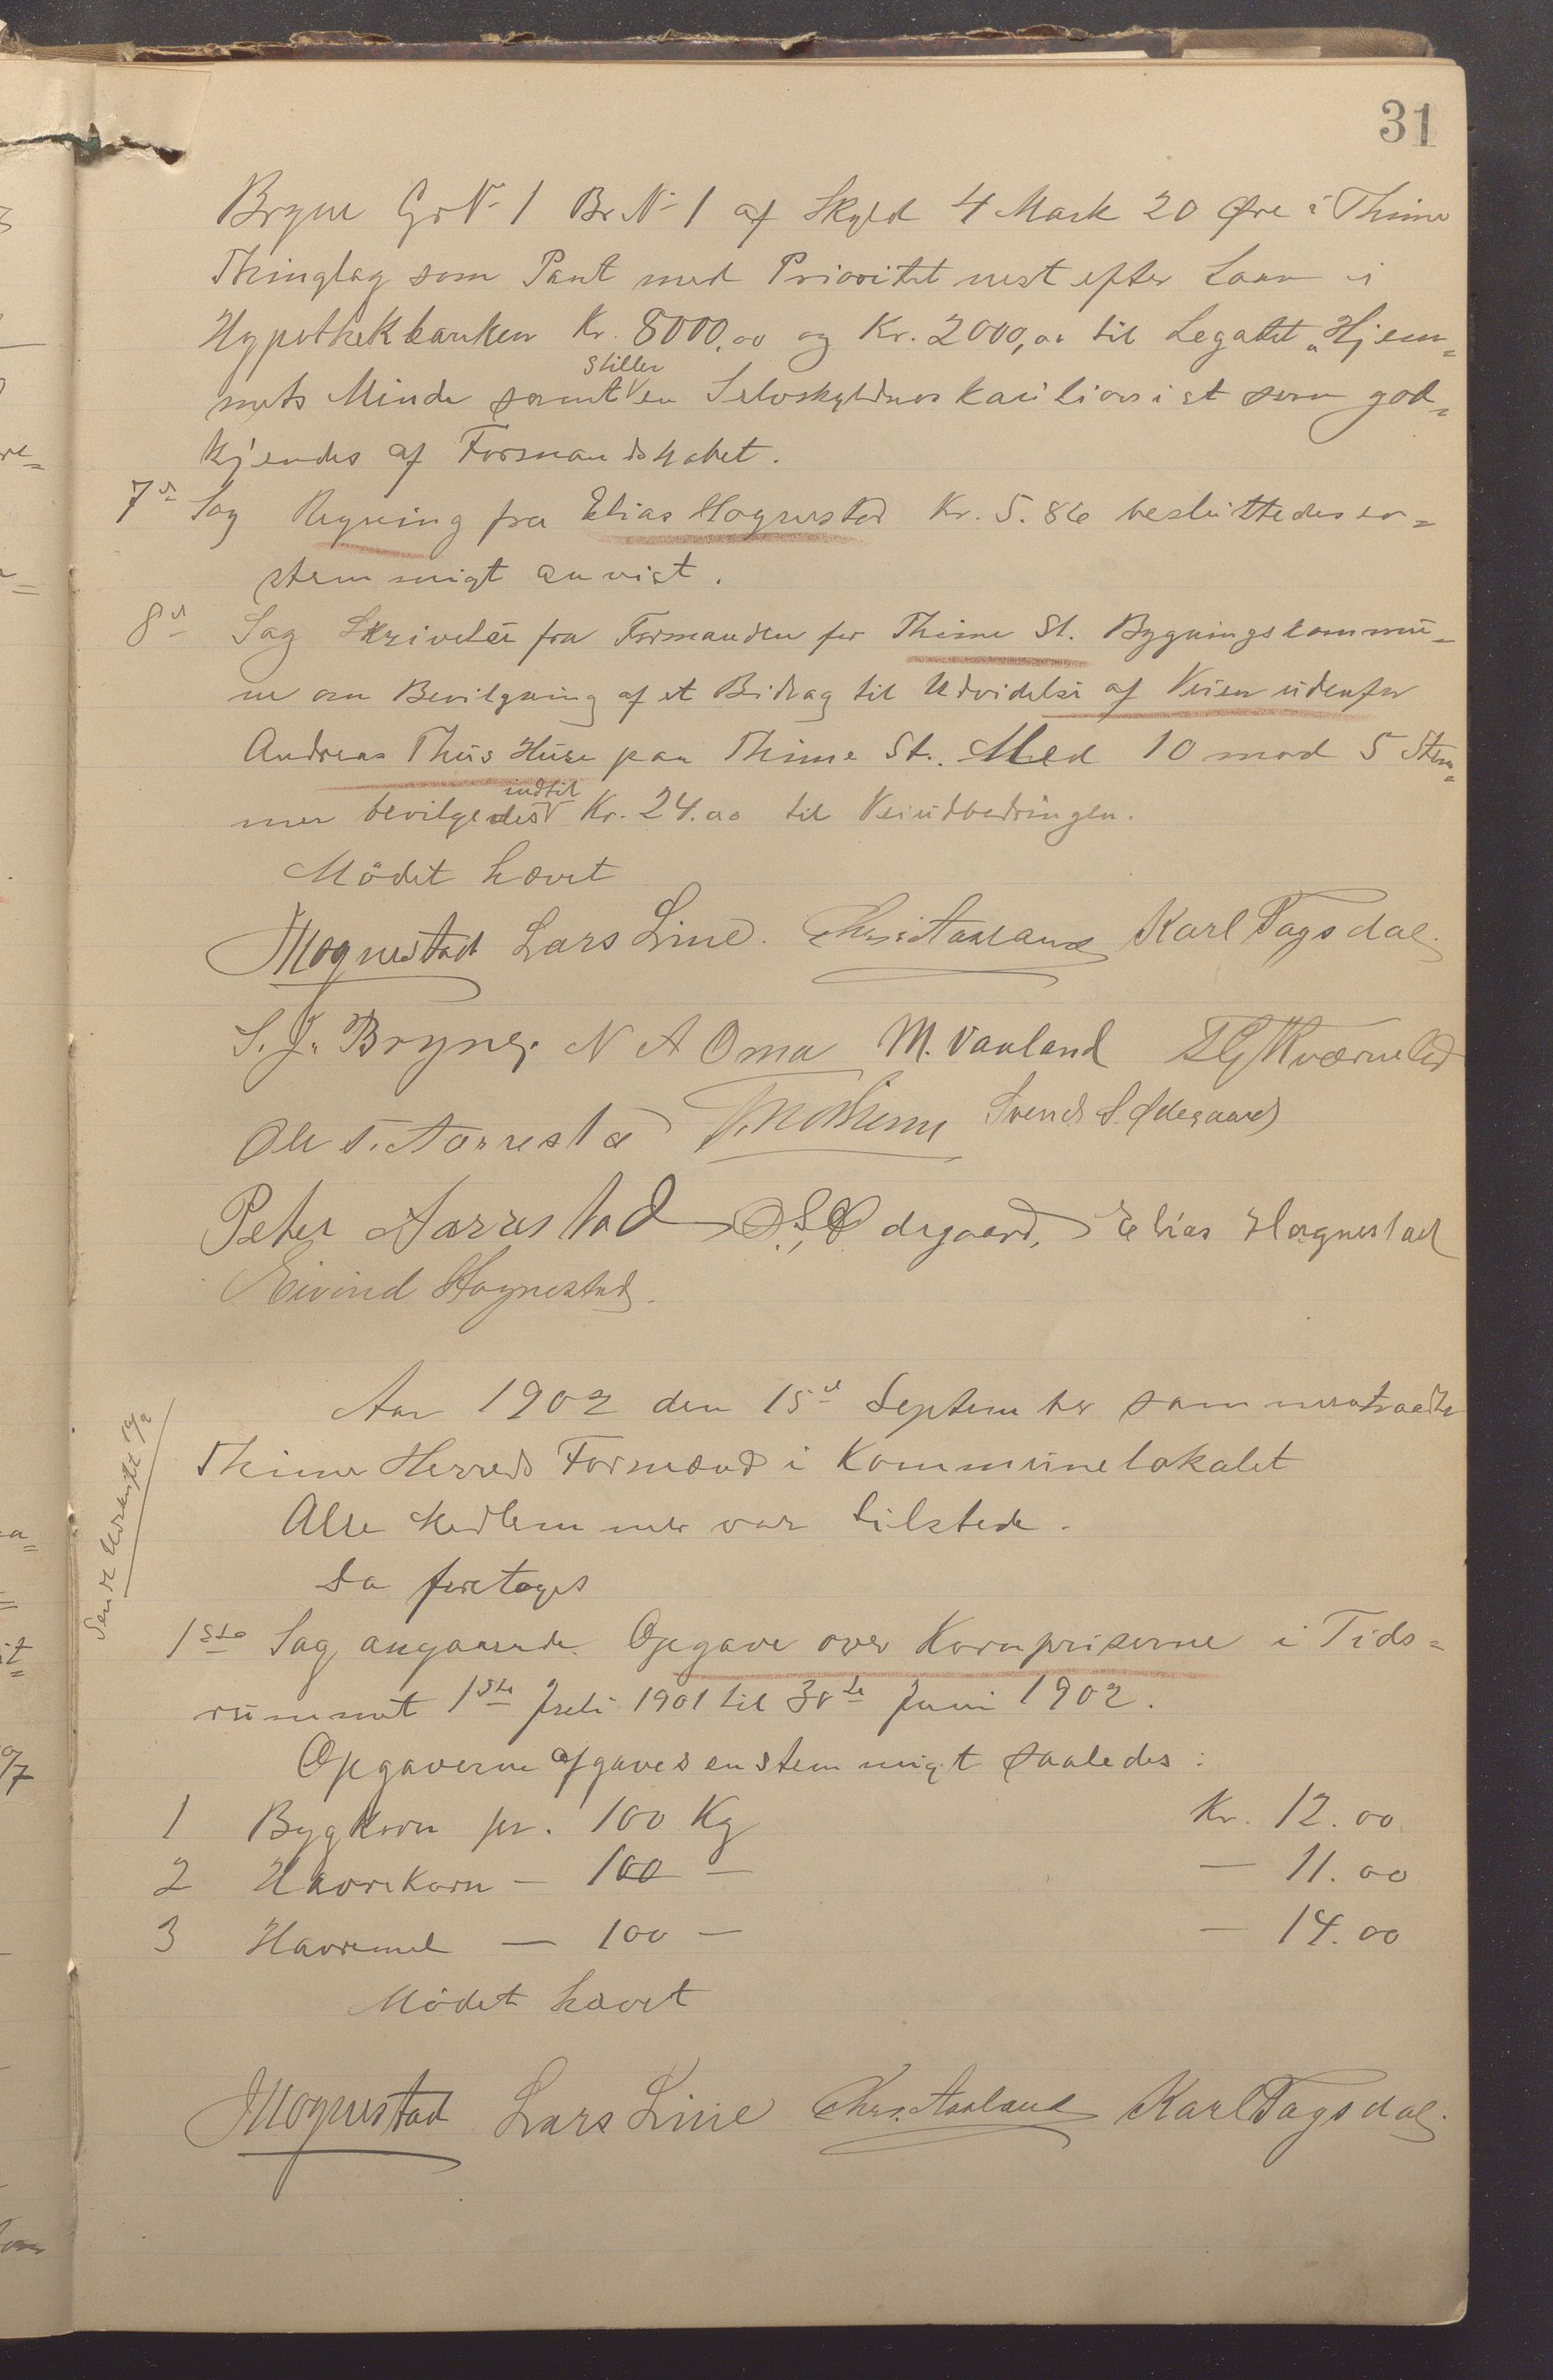 31
Bryne Gr N- 1 Br. N- 1 af Skyld 4 Mark 20 Øre i Thime
Thinglag som Pant med Prioritet nest efter Laan i
Hypothekbanken Kr. 8000,00 og Kr. 2000,00 til Legatet „Hjem=
stiller
mets Minde samt en Selvskyldnerkautionist som god=
kjendes af Formandskabet.
7de Sag Regning fra Elias Hognestad Kr. 5.86 besluttedes en=
stemmigt anvist.
8de Sag Skrivelse fra Formanden for Thime St. Bygningskommu=
ne om Bevilgning af et Bidrag til Udvidelse af Veien udenfor
Andreas Thus Huse paa Thime St. Med 10 mod 5 Stem=
indtil
mer bevilgedes Kr. 24.00 til Veiudbedringen.
Mödet hævet
Hognestad Lars Line. Chr. Aasland Karl Tagsdal.
S. J. Bryne. N A Oma M. Vauland T G Kværneland
Ole T. Aarrestad Svend S. Ødegaard
Peter Aarrestad O. S. Ødegaard, Elias Hognestad
Eivind Hognestad.
Aar 1902 den 15de September sammentraadte
Thime Herreds Formænd i Kommunelokalet
Alle Medlemmer var tilstede.
Da foretoges
Sendt Udskrift
1ste Sag angaaende Opgave over Kornpriserne i Tids=
rummet 1ste Juli 1901 til 30te Juni 1902.
Opgaverne afgaves enstemmigt saaledes:
1 Bygkorn pr. 100 Kg Kr. 12.00
2 Havrekorn - 100 - - 11.00
3 Havremel - 100 - - 14.00
Mödet hævet
Hognestad Lars Line Chr. Aasland Karl Tagsdal.